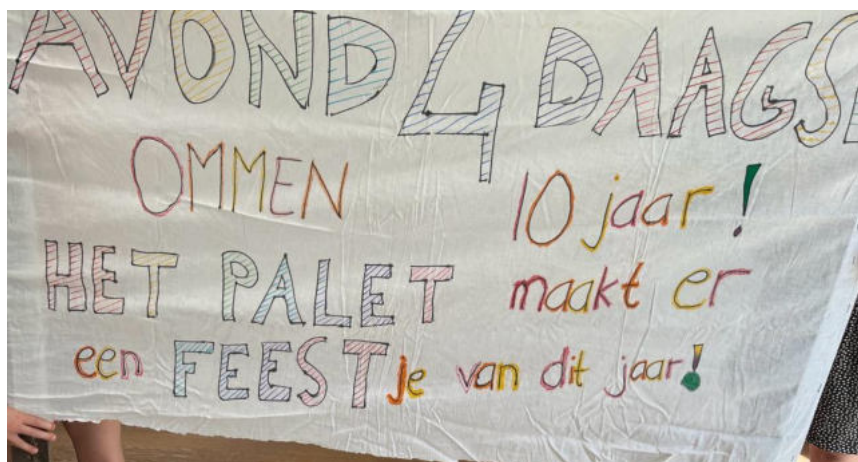 AVOND 4 DAAGSE
OMMEN 10 jaar!
HET PALET maakt er
een FEESTje van dit jaar!